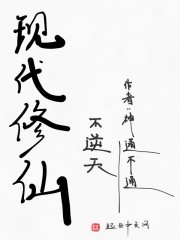 现代修仙
不逆天
作者:神通不通
起点中文网